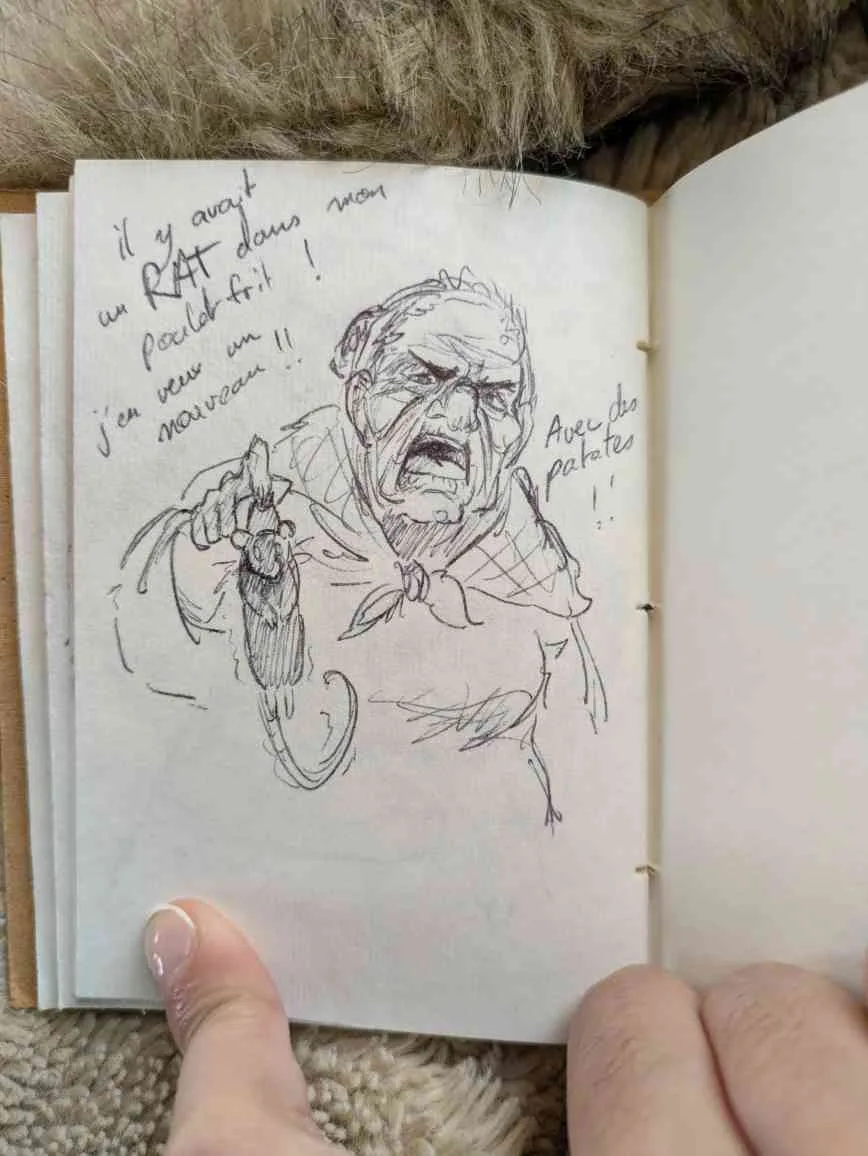 il y avait
un RAT dans mon
poulet frit !
j'en veux un
nouveau !!
Avec des
patates
!!